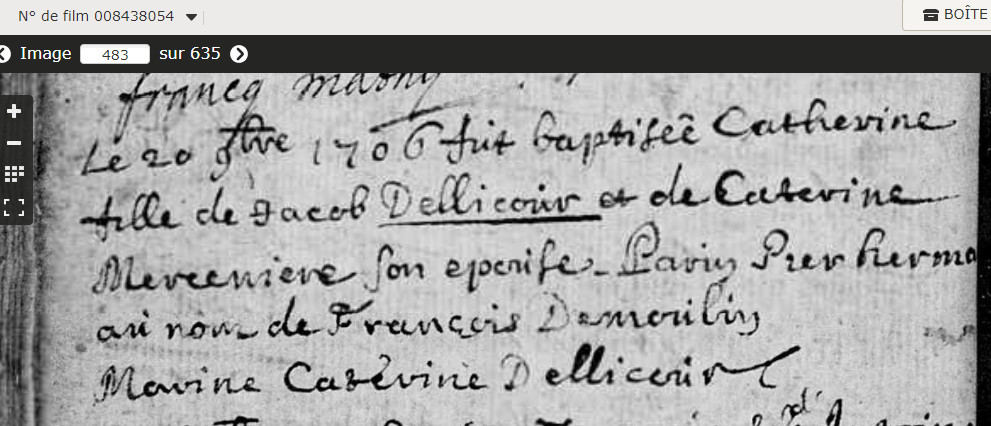 N° de film 008438054
BOÎTE
Image 483 sur 635
francq
Le 20 9bre 1706 fut baptisée Catherine
fille de Jacob Dellicour et de Caterine
Merceniere son epouse. Parin Pier herma
au nom de François Demoulin
Marine Caterine Dellicour